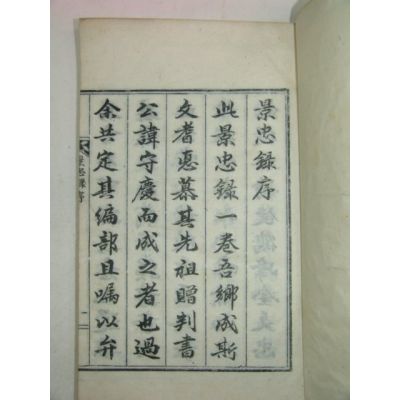 景忠錄序
此景忠錄一卷吾鄉成斯
文耆悳慕其先祖贈判書
公諱守慶而成之者也過
余共定其編部且嘱以弁
景忠錄序
一